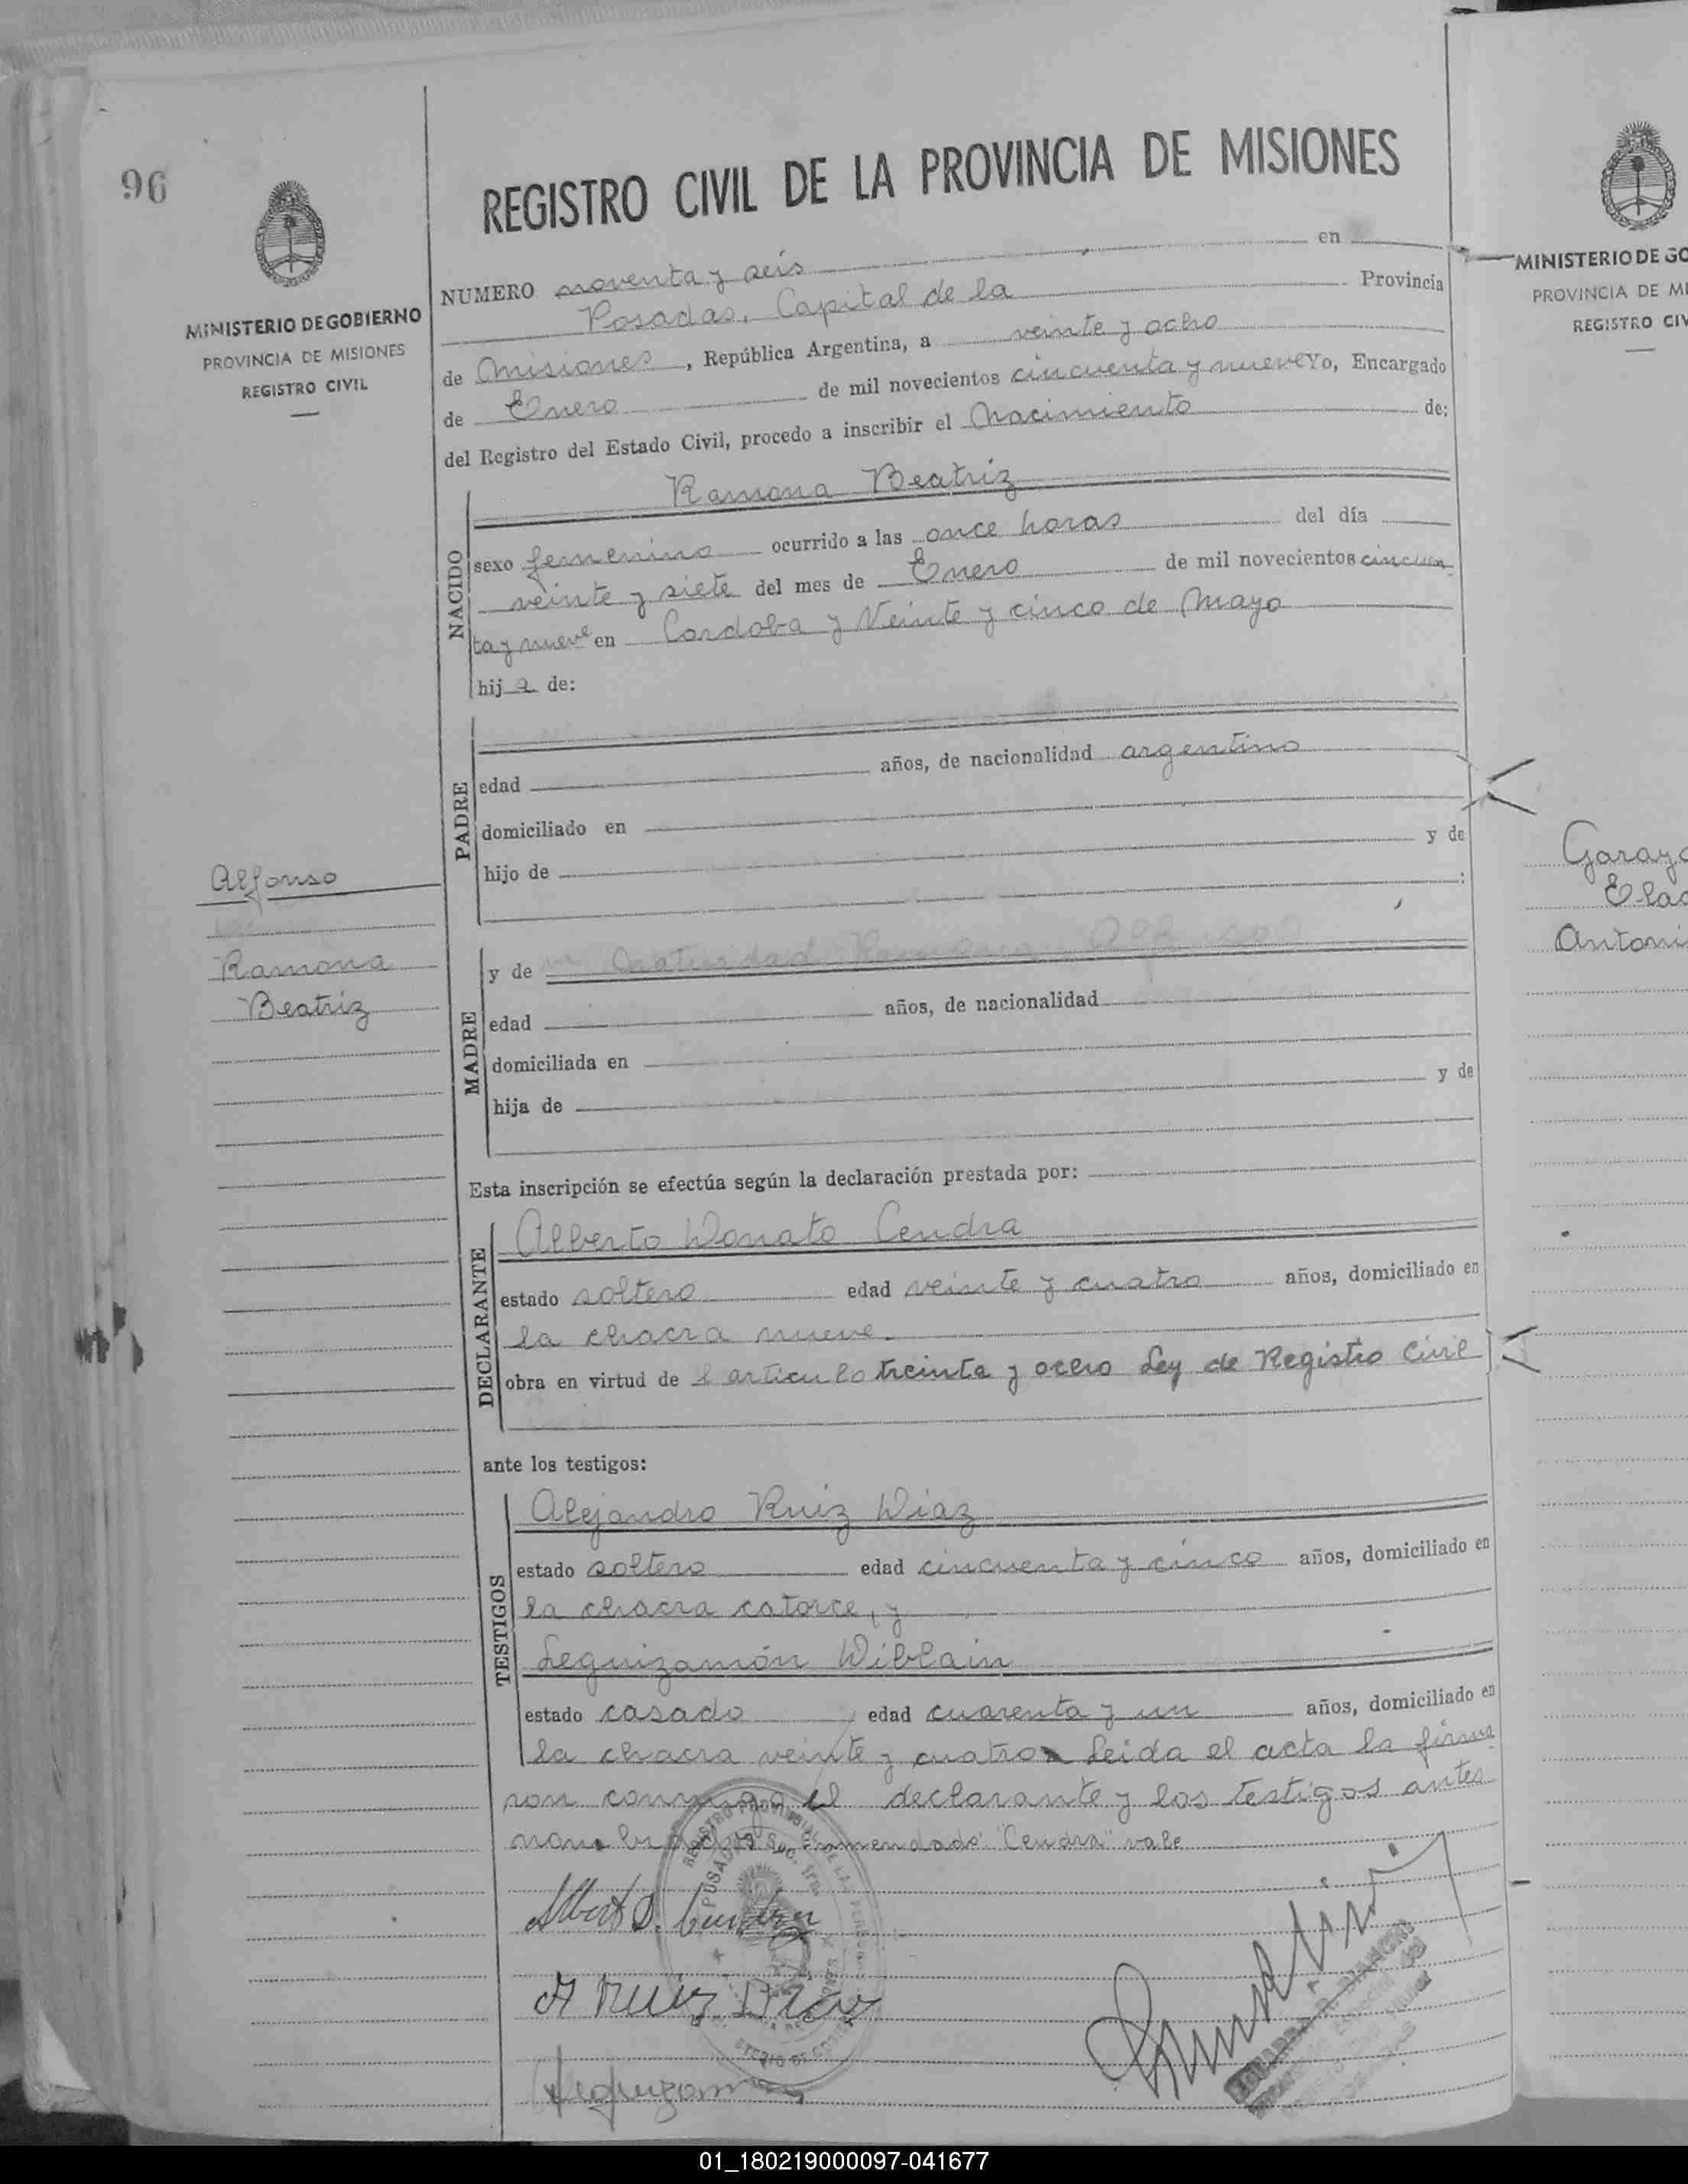 96
REGISTRO CIVIL DE LA PROVINCIA DE MISIONES
MINISTERIO DE GOBIERNO
PROVINCIA DE MISIONES
REGISTRO CIVIL
NUMERO noventa y seis en
Posadas, Capital de la Provincia
de Misiones, República Argentina, a veinte y ocho
de Enero de mil novecientos cincuenta y nueve Yo, Encargado
del Registro del Estado Civil, procedo a inscribir el Nacimiento de:
NACIDO
Ramona Beatriz
sexo femenino ocurrido a las once horas del día
veinte y siete del mes de Enero de mil novecientos cincuen
ta y nueve en Cordoba y Veinte y cinco de Mayo
hija de:
PADRE
edad años, de nacionalidad argentino
domiciliado en
hijo de y de
:
Alfonso
Ramona
Beatriz
MADRE
y de Natividad Alfonso
edad años, de nacionalidad
domiciliada en
hija de y de
Esta inscripción se efectúa según la declaración prestada por:
DECLARANTE
Alberto Donato Cendra
estado soltero edad veinte y cuatro años, domiciliado en
la chacra nueve
obra en virtud de l articulo treinta y ocho Ley de Registro Civil
ante los testigos:
TESTIGOS
Alejandro Ruiz Diaz
estado soltero edad cincuenta y cinco años, domiciliado en
la chacra catorce, y
Leguizamón Wiblain
estado casado edad cuarenta y un años, domiciliado en
la chacra veinte y cuatro Leida el acta la firma
ron conmigo el declarante y los testigos antes
nombrados Enmendado "Cendra" vale
Albert D. Cendra
A Ruiz Diaz
Leguizamon
REGISTRO PROVINCIAL DE LAS PERSONAS
POSADAS
MINISTERIO DE GO
PROVINCIA DE MI
REGISTRO CIV
Garay
Elad
Antoni
01_180219000097-041677